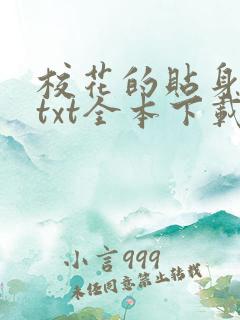 校花的貼身
txt全本下載
小言999
未经同意禁止转载